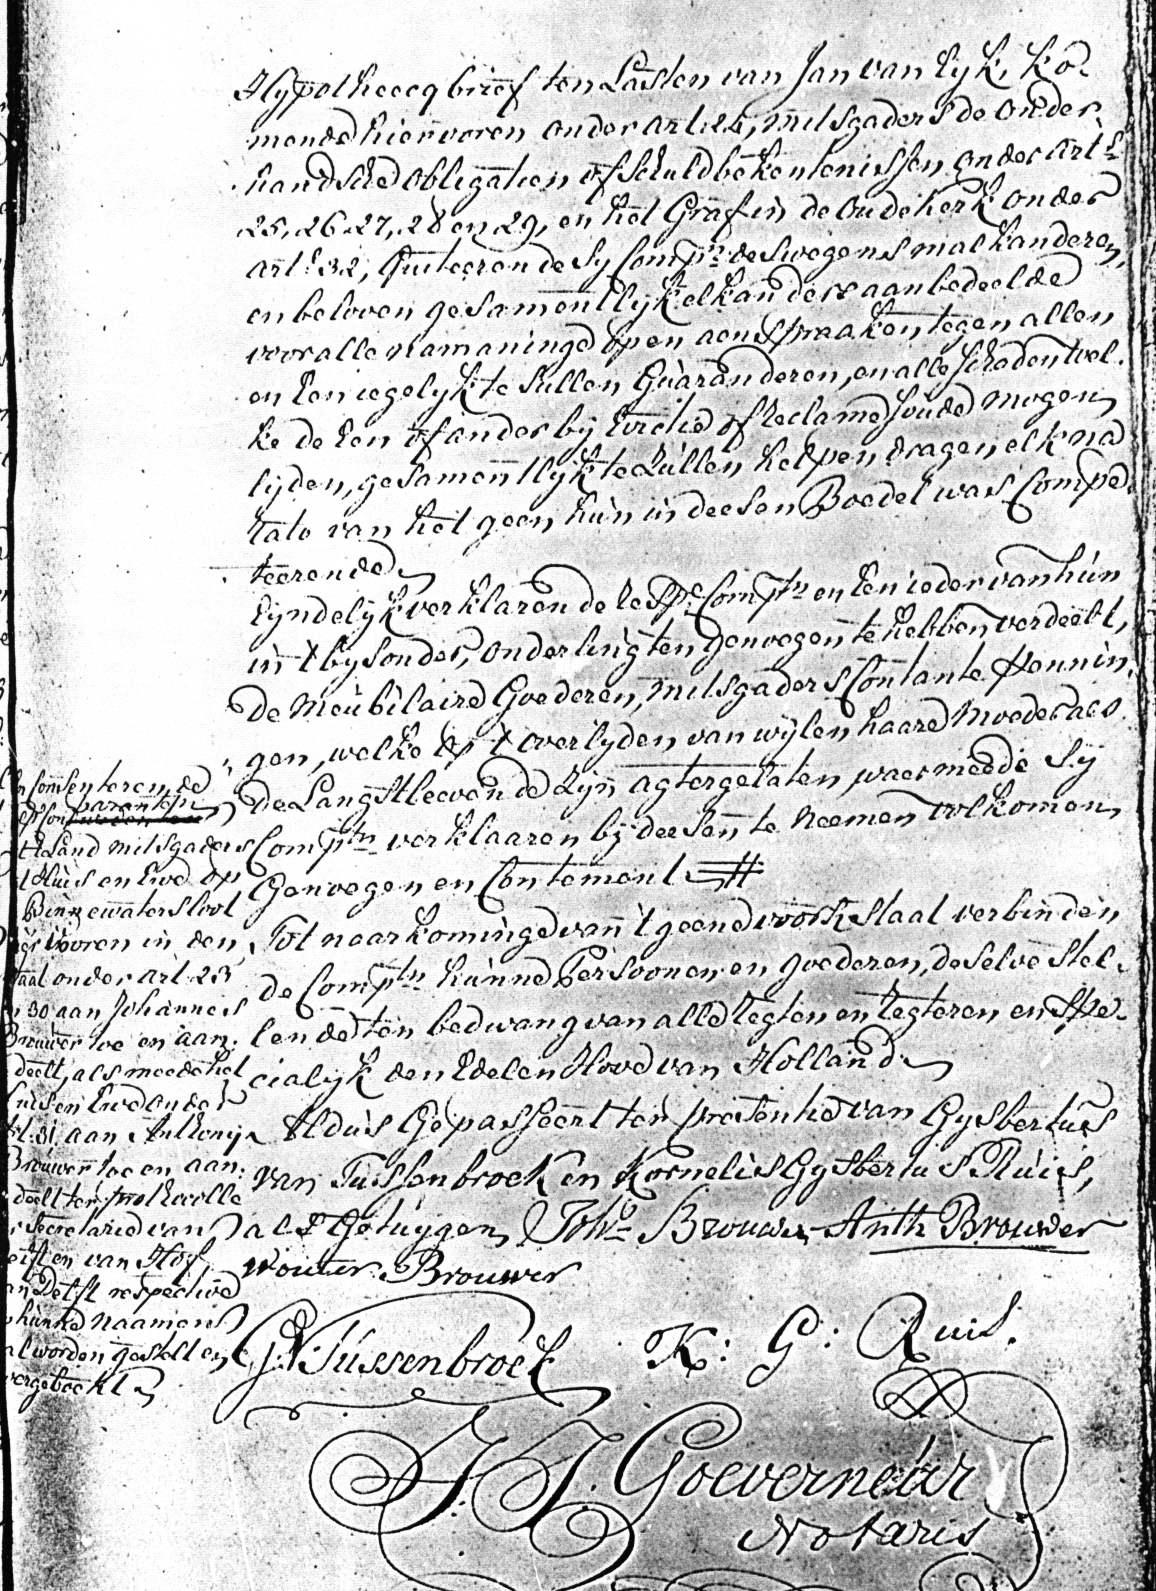 Hypotheecq brief ten Lasten van Jan van Eyk, ko-
mende hier voren onder art: 24, mitsgaders de onder-
handsche obligatien of schuldbekentenissen onder art:
25, 26, 27, 28 en 29, en het Graf in de oude kerk onder
art: 32, Quiteerende sy Comptn deswegens malkanderen,
en beloven gesamentlyk elkanders aanbedeelde
voor alle namaninge op en aenspraaken tegen allen
en een iegelyk te sullen Guaranderen, en alle schaden wel-
ke de een of ander by Evictie of reclame soude mogen
lyden, gesamentlyk te zullen helpen dragen, elk na
rato van het geen hun in deesen Boedel was Compe-
teerende
Eyndelyk verklaren de resp: Comptn en een ieder van hun
in 't bysonder, onderling ten genoegen te hebben verdeelt,
De Meubilaire Goederen, mitsgaders Contante Pennin-
gen, welke op 't overlyden van wylen haare Moeder als
de Langstleevende zyn agtergelaten, waermeede sy
Comptn verklaaren by deesen te neemen volkomen
Genoegen en Contement
Tot naarkominge van 't geene voorsz staat verbinden
de Comptn hunne Persoonen en goederen, deselve stel-
lende ten bedwang van alle regten en regteren en spe-
cialyk den Edelen Hove van Holland
Aldus Gepasseert ter presentie van Gysbertus
van Tussenbroek en Kornelis Gysbertus Ruis,
als Getuygen Johs Brouwer Anth Brouwer
Wouter Brouwer
G V Tussenbroek K: G: Ruis.
J. J. Goeverneur
Notaris
Consenterende
't Land mitsgaders
't Huis en Erve op
Binnewatersloot
hier voren in den
staat onder art: 23
30 aan Johannes
Brouwer toe en aan-
deelt, als meede het
huis en Erve onder
art: 31 aan Anthony
Brouwer toe en aan-
deelt ter prothocolle
Secretarie van
Delft en van Hof
van Delft respective
hunne Naamen
worden gestelt en
overgeboekt